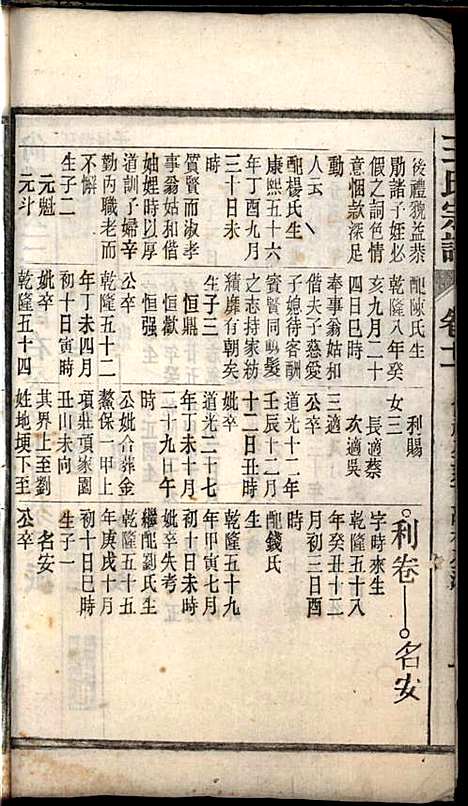 王氏宗譜
卷十一
後禮貌益恭
勖諸子姪必
假之詞色情
意悃款深足
動
人云
配楊氏生
康熙五十六
年丁酉九月
三十日
時
質賢而淑孝
事翁姑和偕
妯娌時以厚
道訓子婦辛
勤內職老而
不懈
生子二
元魁
元斗
配陳氏生
乾隆八年癸
亥九月二十
四日巳時
奉事翁姑和
偕夫子慈愛
子媳待客酬
賓賢同鴫髮
之志持家紡
績靡有朝矣
生子三
恒鼎
恒強
公卒
乾隆五十二
年丁未四月
初十日寅時
妣卒
乾隆五十四
利賜
女三
長適蔡
次適吳
三適
公卒
道光十二年
壬辰十二月
十二日丑時
妣卒
道光二十七
年丁未十月
二十九日午
時
公妣合葬金
鰲保一甲上
項莊項家園
丑山未向
其界上至劉
姓地埂下至
利卷
名安
字時來生
乾隆五十八
年癸丑十一
月初三日酉
時
配錢氏
生
乾隆五十九
年甲寅七月
初十日未時
妣卒失考
繼配劉氏生
乾隆五十五
年庚戌十月
初十日巳時
生子一
名安
公卒